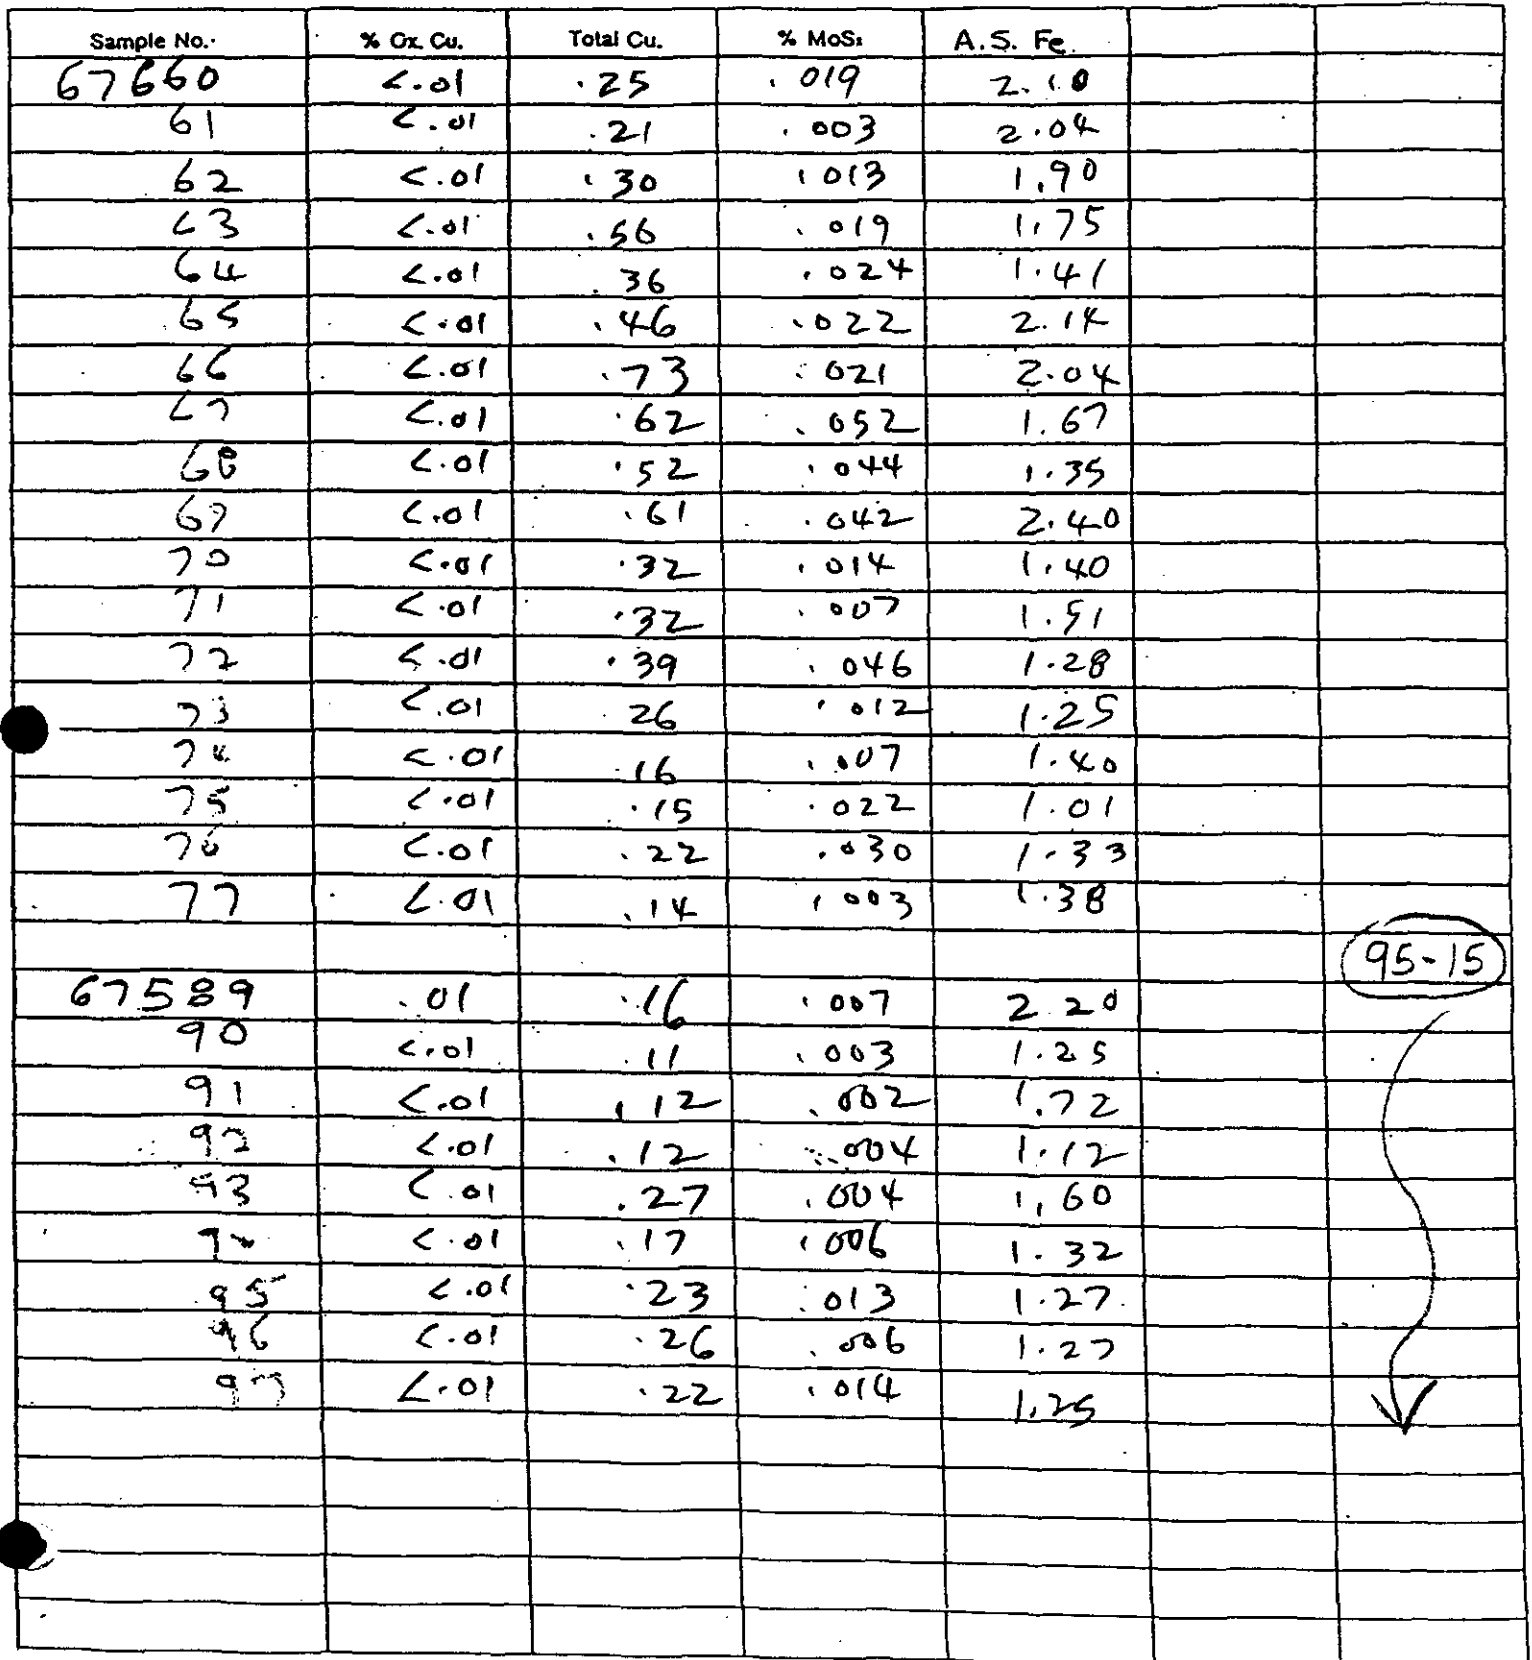 Sample No. % Ox. Cu. Total Cu. % MoS₂ A.S. Fe
67660 <.01 .25 .019 2.10
61 <.01 .21 .003 2.04
62 <.01 .30 .013 1.90
63 <.01 .56 .019 1.75
64 <.01 .36 .024 1.41
65 <.01 .46 .022 2.14
66 <.01 .73 .021 2.04
67 <.01 .62 .052 1.67
68 <.01 .52 .044 1.35
69 <.01 .61 .042 2.40
70 <.01 .32 .014 1.40
71 <.01 .32 .007 1.51
72 <.01 .39 .046 1.28
73 <.01 26 .012 1.25
74 <.01 .16 .007 1.40
75 <.01 .15 .022 1.01
76 <.01 .22 .030 1.33
77 <.01 .14 .003 1.38
95-15
67589 .01 .16 .007 2 20
90 <.01 .11 .003 1.25
91 <.01 .12 .002 1.72
92 <.01 .12 .004 1.12
93 <.01 .27 .004 1.60
94 <.01 .17 .006 1.32
95 <.01 .23 .013 1.27
96 <.01 .26 .006 1.27
97 <.01 .22 .014 1.25